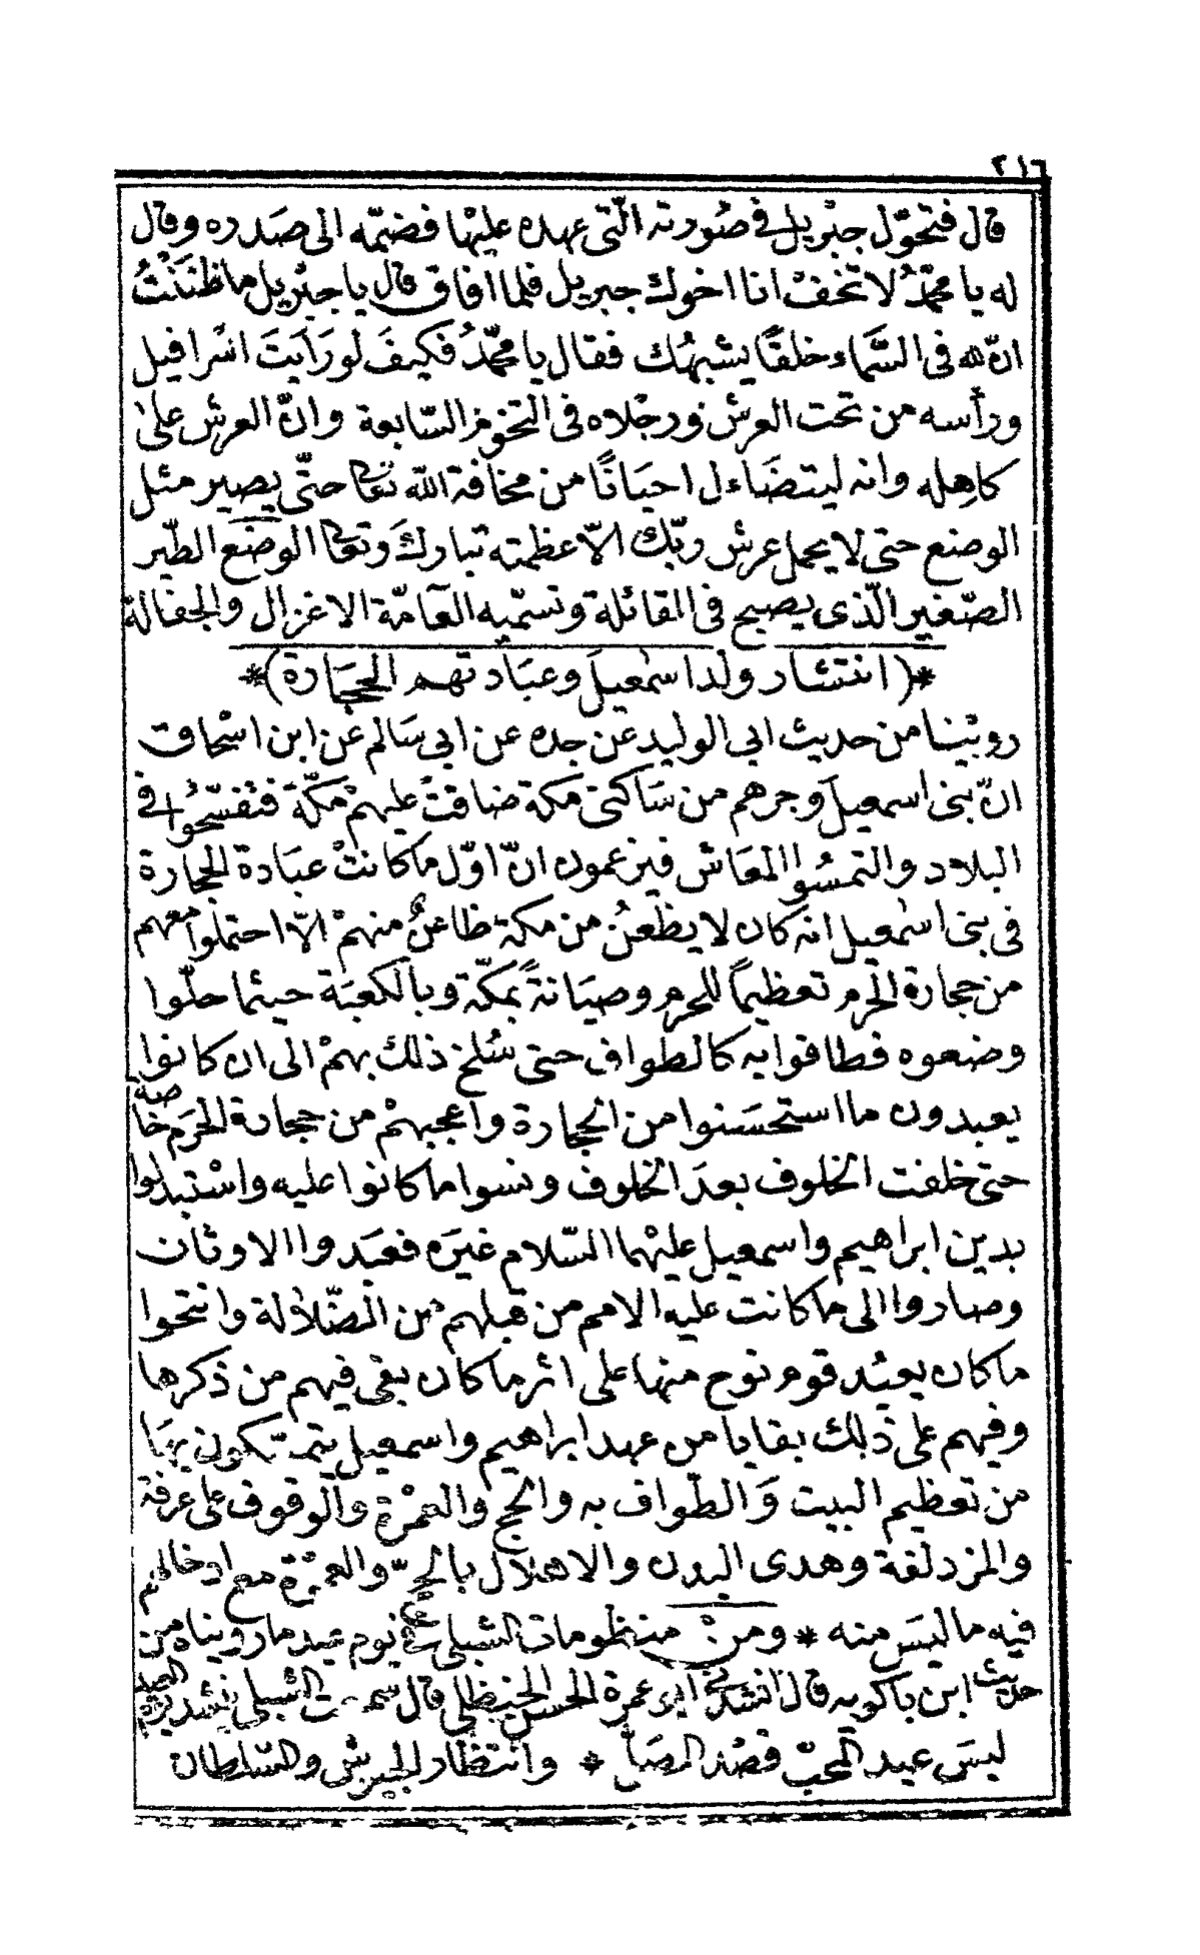 ٢١٦
قال فتحوّل جبْريل في صُورته الّتي عهده عليْها فضمّه الى صَدره وقال
له يا محمّدُ لا تخفْ انا اخوك جبريل فلما افاق قال يا جبْريل ما ظنَنْتُ
انّ لله في السَّماء خلقًا يشبهُك فقال يا محمّدُ فكيفَ لو رَايَتَ اسْرافيل
ورأسه من تحت العرش ورجْلاه في التخوم السّابعة وانّ العرش علىٰ
كاهله وانه ليتضَاءل احيَانًا من مخافة الله تعالى حتّى يصير مثل
الوصع حتى لا يحمل عرش ربّك الّا عظمته تبارك وتعالى الوصَع الطّير
الصّغير الّذى يصيح في القائلة وتسمّيه العَامّة الاغزال والجفالة
*(انتشار ولد اسمٰعيلَ وعبَادتهم الحجَارة)*
روينا من حديث ابي الوليد عن جده عن ابي سَالم عن ابن اسْحاق
انّ بنى اسمعيلَ وجرهم من سَاكنى مكة ضاقتْ عليهمْ مكّة فتفسّحُوا في
البلاد والتمسُوا المعَاش فيزعمون انّ اوّل ما كانتْ عبَادة الحجارة
في بنى اسمٰعيل انه كان لا يظْعنُ من مكة ظاعنٌ منهمْ الّا احتملوا معهم
من حجارة الحَرم تعظيمًا للحرم وصيَانةً بمكّة وبالكعبَة حيثما حلّوا
وضعوه فطافوا به كالطواف حتى سُلخ ذلك بهمْ الى ان كانوا
يعبدون ما استحسَنوا من الحجارة واعجبهمْ من حجارة الحَرم خاصة
حتى خلفت الخلوف بعدَ الخلوف ونسوا ما كانوا عليه واسْتبدلوا
بدين ابراهيم واسمعيل عليْهما السّلام غيَره فعَبَدوا الاوثان
وصاروا الى ما كانت عليه الامم من قبلهم من الضّلالة وانتحوا
ما كان يعبُد قوم نوح منها على اثر ما كان بقى فيهم من ذكرها
وفيهم على ذلك بقايا من عهد ابراهيم واسمعيل يتمسّكون بهَا
من تعظيم البيت وَالطّواف به والحجّ والعمْرة والوقوف على عرفة
والمزدلفة وهدى البدن والاهلال بالحجّ والعمْرة مع ادخالهم
فيه ما ليَس منه * ومنْ منظومات الشبلى يوم عيد ما رويناه من
حديث ابن باكويه قال انشدني ابو عمرة الحسن الحنظلى قال سمعت الشبلى ينشد يوم العيد
ليسَ عيد المحبّ قصْد المصَلّى * وانتظار الجيوش والسّلطان